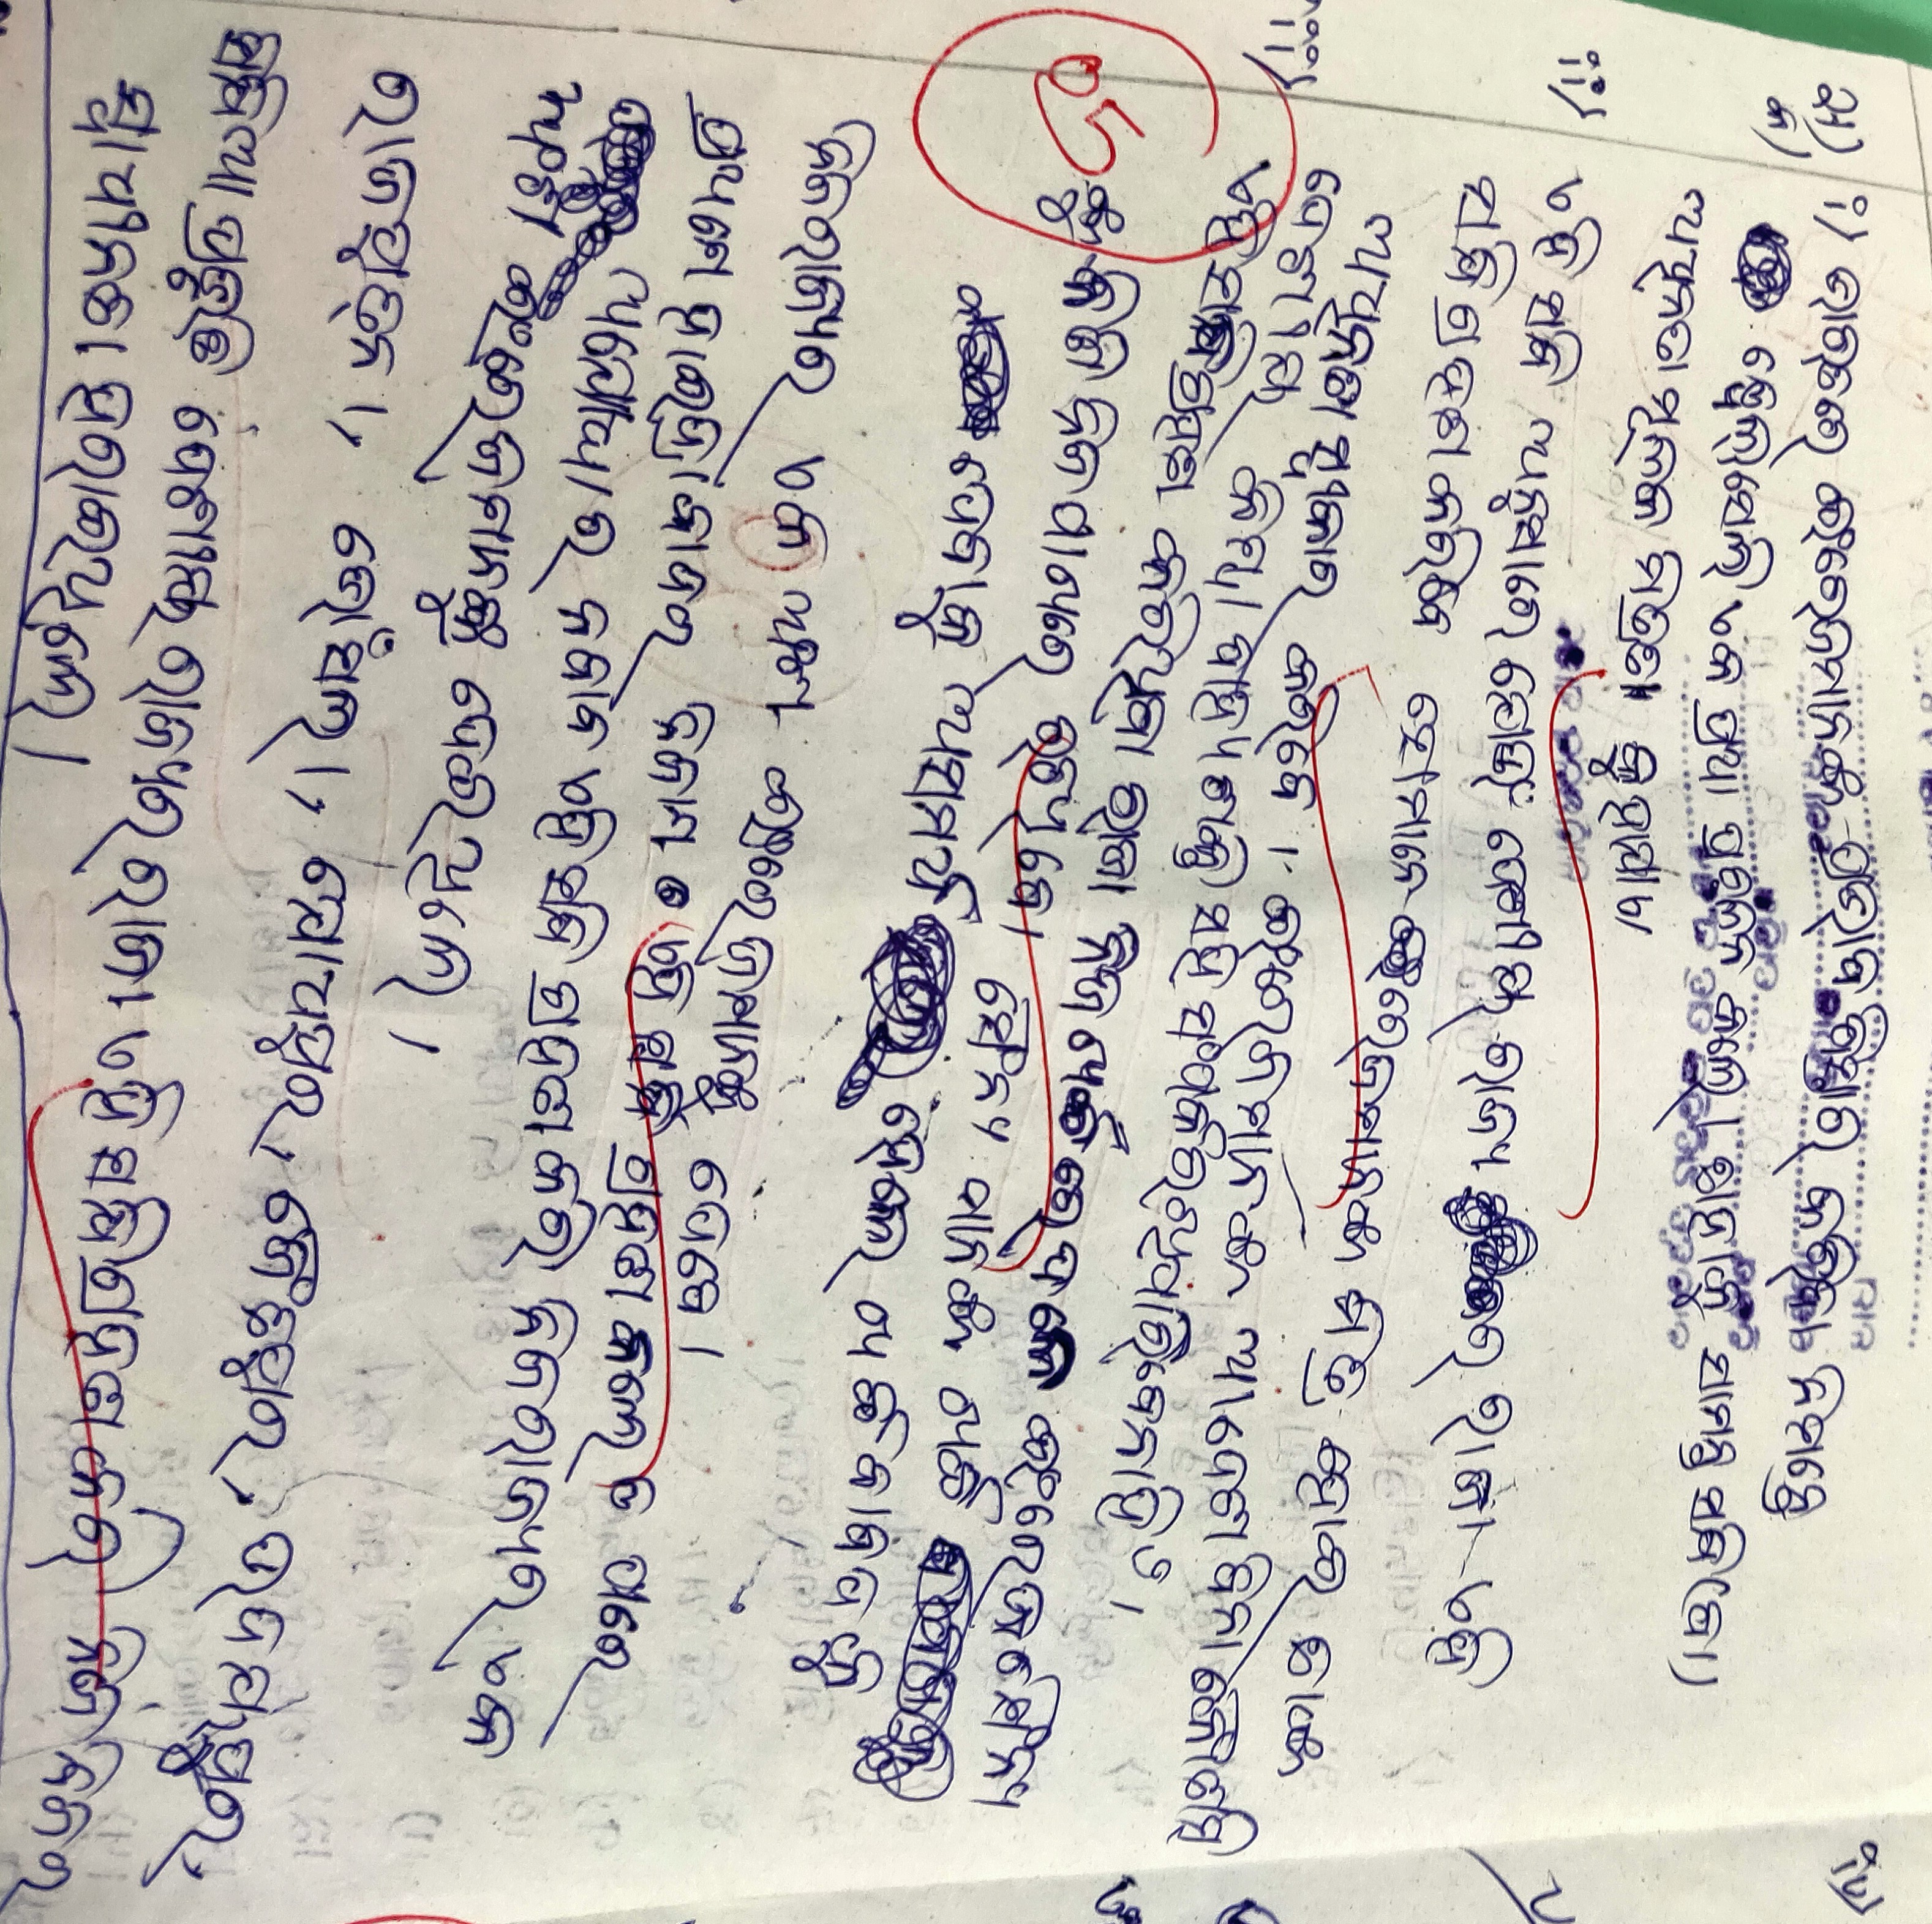 ୪) i) ଭାରତରେ ଇଂରେଜମାନଙ୍କ ପ୍ରଭାବ ବିସ୍ତାର କରିବା ନିମନ୍ତେ
କ) ୱେଲେସେଲି ଏକ ପ୍ରଥା ପ୍ରଚଳନ କଲେ। ତାହାକୁ ସାମନ୍ତ ସନ୍ଧି (ବା)
ଅଧିନତା ମୂଳକ ମିତ୍ରତା କୁହାଯାଏ।
ii) ଏହି ସନ୍ଧି ଅନୁସାରେ ଯେଉଁ ଦେଶୀୟ ରାଜ୍ୟ ର ରାଜା ଏହି
ସନ୍ଧି ଗ୍ରହଣ କରିବେ ସେମାନେ ଇଂରେଜମାନଙ୍କ ମିତ୍ର ହୋଇ ତାଙ୍କ
ଅଧିନତା ସ୍ୱୀକାର କରିବେ। ଇଂରେଜମାନଙ୍କ ଆଦେଶ ବିନା କୌଣସି
ଦେଶୀୟ କିମ୍ବା ବାହ୍ୟ ଶକ୍ତି ସହ ସଂପର୍କ ରଖିପାରିବେ ନାହିଁ।
iii) ଏହି ସନ୍ଧି ଗ୍ରହଣ କରିଥିବା ରାଜା ନିଜ ଖର୍ଚ୍ଚରେ ଦଳେ ଇଂରେଜ ସୈନ୍ୟ
ଙ୍କୁ କିଣି ନିଜ ପାଖରେ ରଖିବେ। ସୈନ୍ୟ ମାନଙ୍କ ଖର୍ଚ୍ଚ
ଦେବାକୁ ଅସମର୍ଥ ହେଲେ ଖର୍ଚ୍ଚ ବାବଦକୁ
ନିଜ ରାଜ୍ୟର ଏକ ଅଂଶ ଇଂରେଜମାନଙ୍କୁ ଦେବେ।
ପ୍ରଥମେ ହାଇଦ୍ରାବାଦର ନିଜାମ ଏହି ସନ୍ଧି ଗ୍ରହଣ କଲେ ଓ ପରେ
ଅଯୋଧ୍ୟାର ନବାବ ଏହି ସନ୍ଧି ଗ୍ରହଣ କରି ନିଜ ରାଜ୍ୟର ଏକ
ଅଂଶ ଇଂରେଜମାନଙ୍କୁ ଦେଇଥିଲେ।
ରାଜପୁତ୍‌ନା, ଭୋଁସଲା, ଯୋଧପୁର, ଜୈତପୁର, ଉଦୟପୁର,
ସନ୍ଧିଆ ପ୍ରଭୃତି ଦେଶୀୟ ରାଜ୍ୟର ରାଜା ଏହି ସନ୍ଧି ଗ୍ରହଣ କରି ନିଜ ନିଜର
ସ୍ୱାଧୀନତା ହରାଇଥିଲେ।
05
iv)
v)